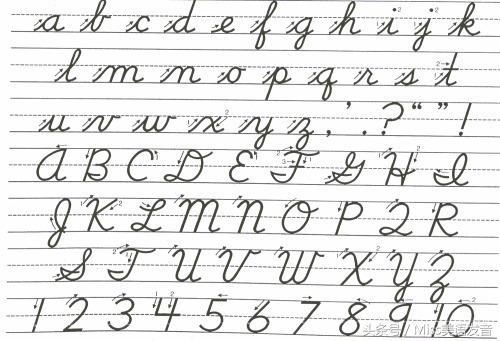 a b c d e f g h i j k
l m n o p q r s t
u v w x y z , ' . ? “ ” !
A B C D E F G H I
J K L M N O P Q R
S T U V W X Y Z
1 2 3 4 5 6 7 8 9 10
头条号 / Miss美语发音